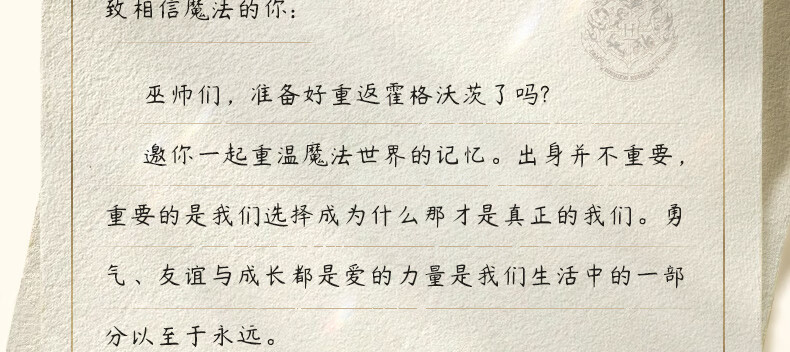 致相信魔法的你：
巫师们，准备好重返霍格沃茨了吗?
邀你一起重温魔法世界的记忆。出身并不重要，
重要的是我们选择成为什么那才是真正的我们。勇
气、友谊与成长都是爱的力量是我们生活中的一部
分以至于永远。